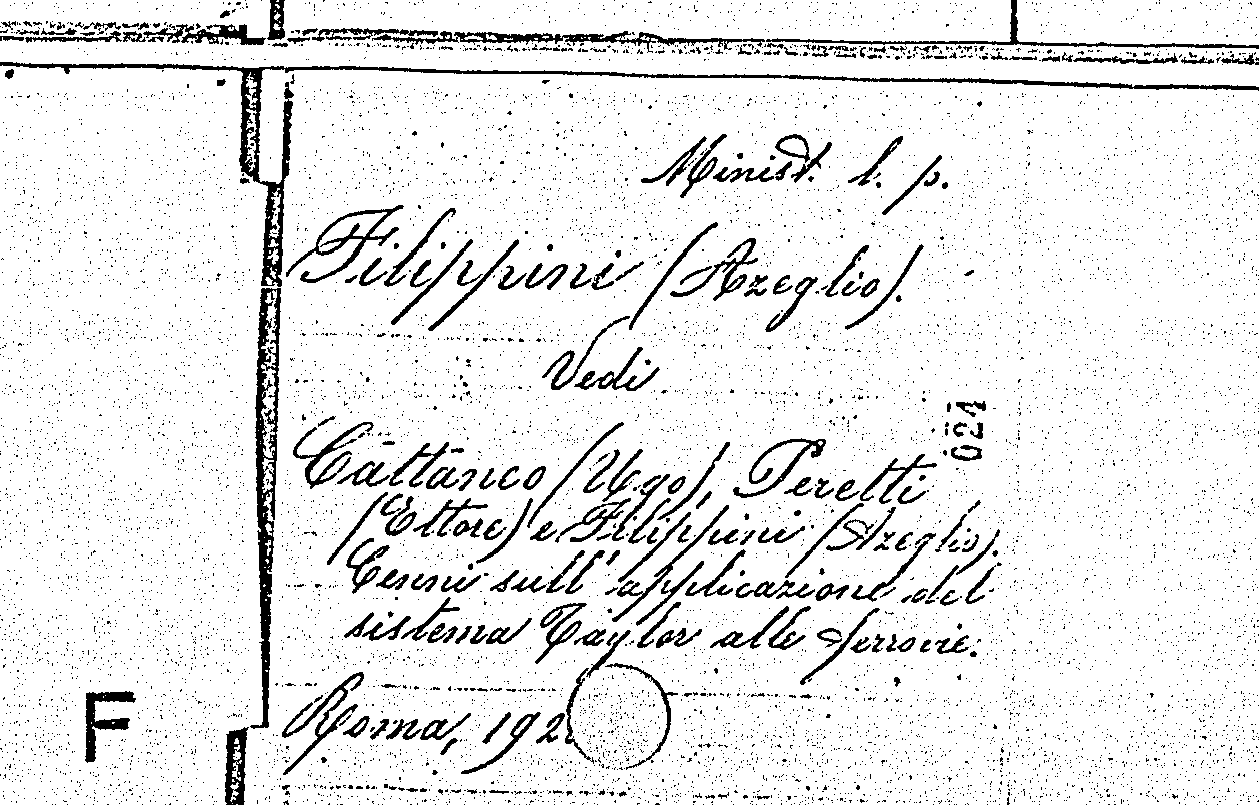 Minist. l. p.
Filippini (Azeglio).
Vedi
024
Cattaneo (Ugo), Peretti
(Ettore) e Filippini (Azeglio).
Cenni sull' applicazione del
sistema Taylor alle ferrovie.
F
Roma,